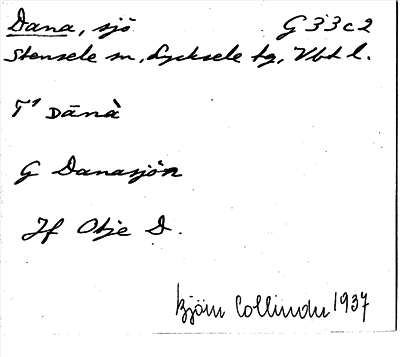 Dana, sjö G 33 c 2
Stensele sn, Lycksele tg, Vbt l.
T' Dānà
G Danasjön
Jf Obje D.
Björn Collinder 1937